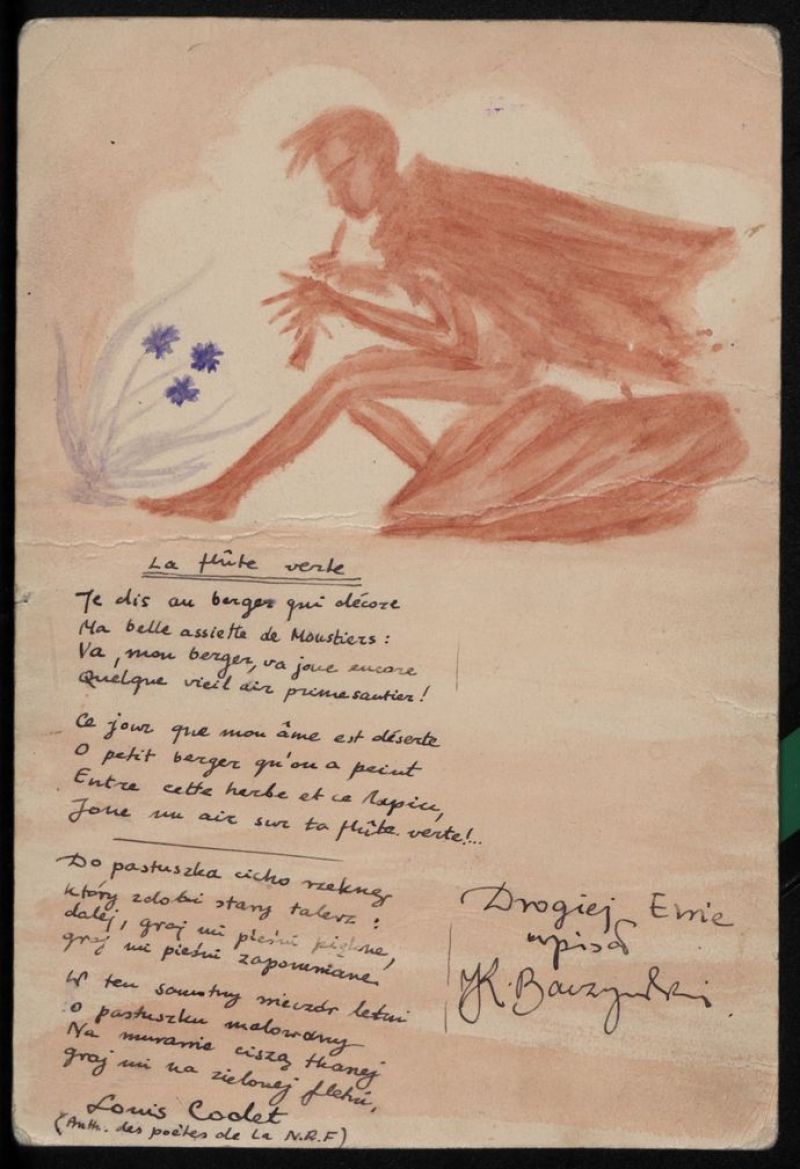 La flûte verte
Je dis au berger qui décore
Ma belle assiette de Moustiers :
Va, mon berger, va joue encore
Quelque vieil air primesautier !
Ce jour que mon âme est déserte
O petit berger qu'on a peint
Entre cette herbe et ce lapin,
Joue un air sur ta flûte verte !...
Do pastuszka cicho rzeknę
który zdobi stary talerz :
dalej, graj mi pieśni piękne,
graj mi pieśni zapomniane.
W ten samotny wieczór letni
o pastuszku malowany
Na murawie ciszą tkanej
graj mi na zielonej fletni,
Louis Codet
(Anth. des poètes de la N.R.F)
Drogiej Ewie
wpisał
K. Baczyński.